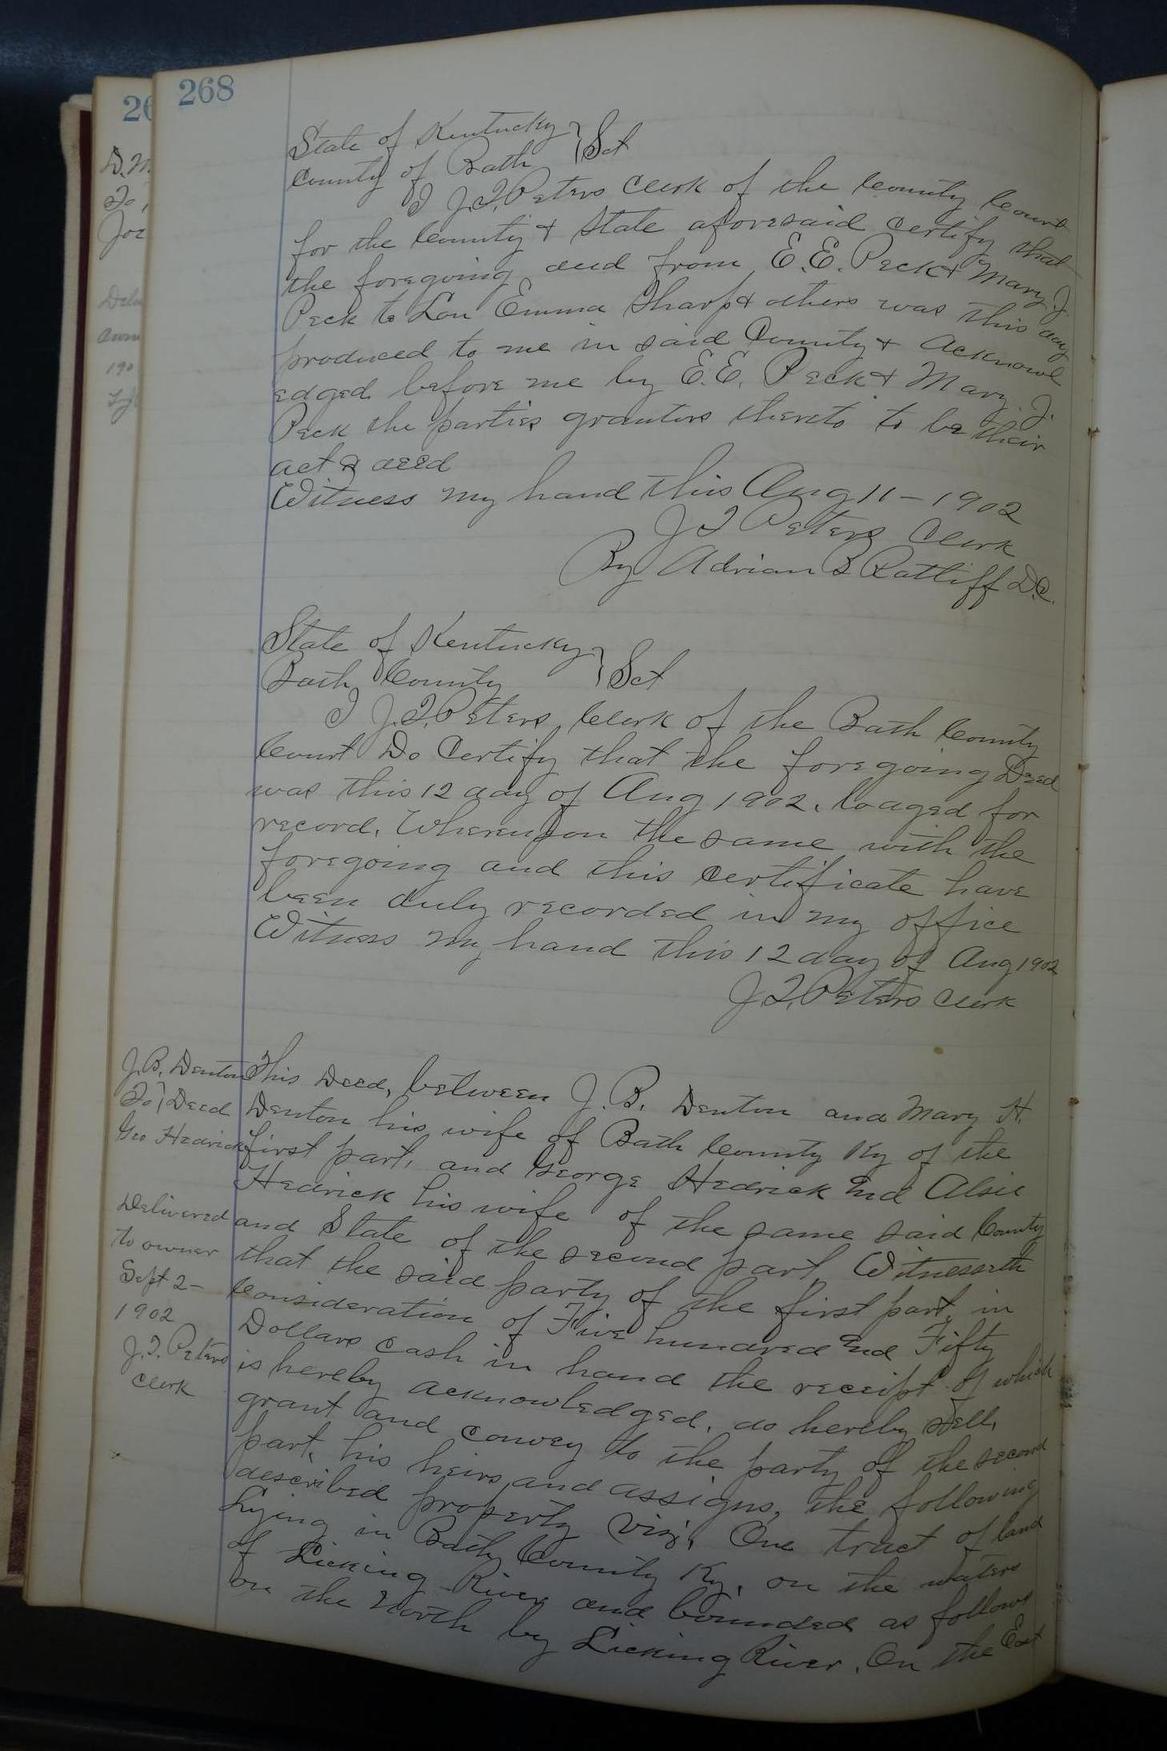 268
State of Kentucky } Sct
County of Bath
I J.T. Peters Clerk of the County Court
for the County & State aforesaid certify that
the foregoing deed from E.E. Peck & Mary J.
Peck to Lou Emma Sharp & others was this day
produced to me in said County & Acknowl
edged before me by E.E. Peck & Mary J.
Peck the parties grantors thereto to be their
act & deed
Witness my hand this Aug 11 - 1902
J T Peters Clerk
By Adrian B Ratliff D.C.
State of Kentucky } Sct
Bath County
I J.T. Peters, Clerk of the Bath County
Court Do Certify that the foregoing Deed
was this 12 day of Aug 1902. lodged for
record. Whereupon the same with the
foregoing and this certificate have
been duly recorded in my office
Witness my hand this 12 day of Aug 1902
J.T. Peters Clerk
J.B. Denton
To } Deed
Geo Hedrick
Delivered
to owner
Sept 2 -
1902
J.T. Peters
Clerk
This Deed, between J.B. Denton and Mary H.
Denton his wife of Bath County Ky of the
first part, and George Hedrick and Alsie
Hedrick his wife of the same said County
and State of the second part, Witnesseth
that the said party of the first part, in
Consideration of Five hundred and Fifty
Dollars cash in hand the receipt of which
is hereby acknowledged, do hereby sell,
grant and convey to the party of the second
part, his heirs and assigns, the following
described property viz; One tract of land
Lying in Bath County Ky, on the waters
of Licking River and bounded as follows
on the North by Licking River. On the East
26
D. M
To
Joe
190